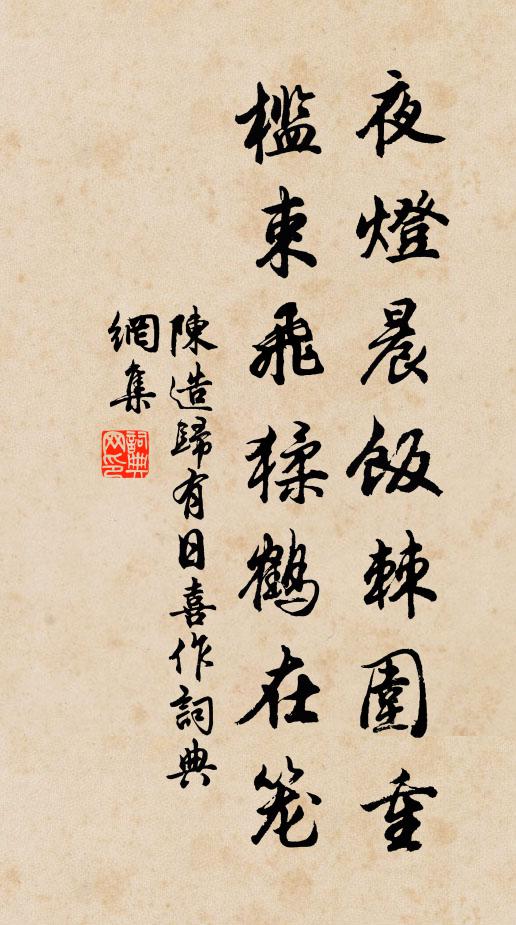 夜燈晨飯棘圍重
檻束飛猱鶴在笼
陳造歸有日喜作詞典
網集
詞典
网印